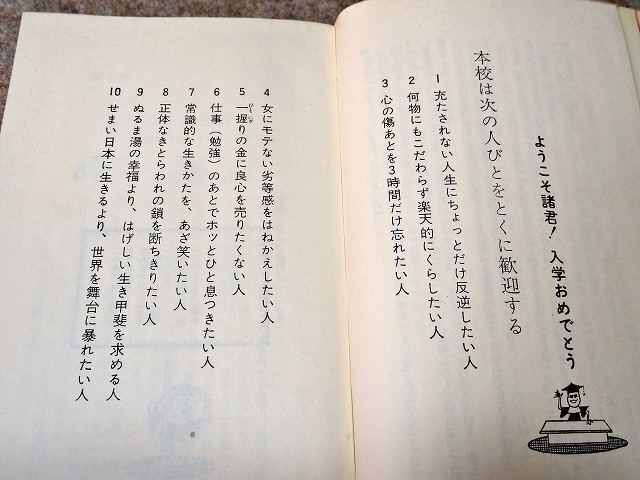 ようこそ諸君! 入学おめでとう
本校は次の人びとをとくに歓迎する
1 充たされない人生にちょっとだけ反逆したい人
2 何物にもこだわらず楽天的にくらしたい人
3 心の傷あとを3時間だけ忘れたい人
4 女にモテない劣等感をはねかえしたい人
5 一握りの金に良心を売りたくない人
6 仕事(勉強)のあとでホッとひと息つきたい人
7 常識的な生きかたを、あざ笑いたい人
8 正体なきとらわれの鎖を断ちきりたい人
9 ぬるま湯の幸福より、はげしい生き甲斐を求める人
10 せまい日本に生きるより、世界を舞台に暴れたい人